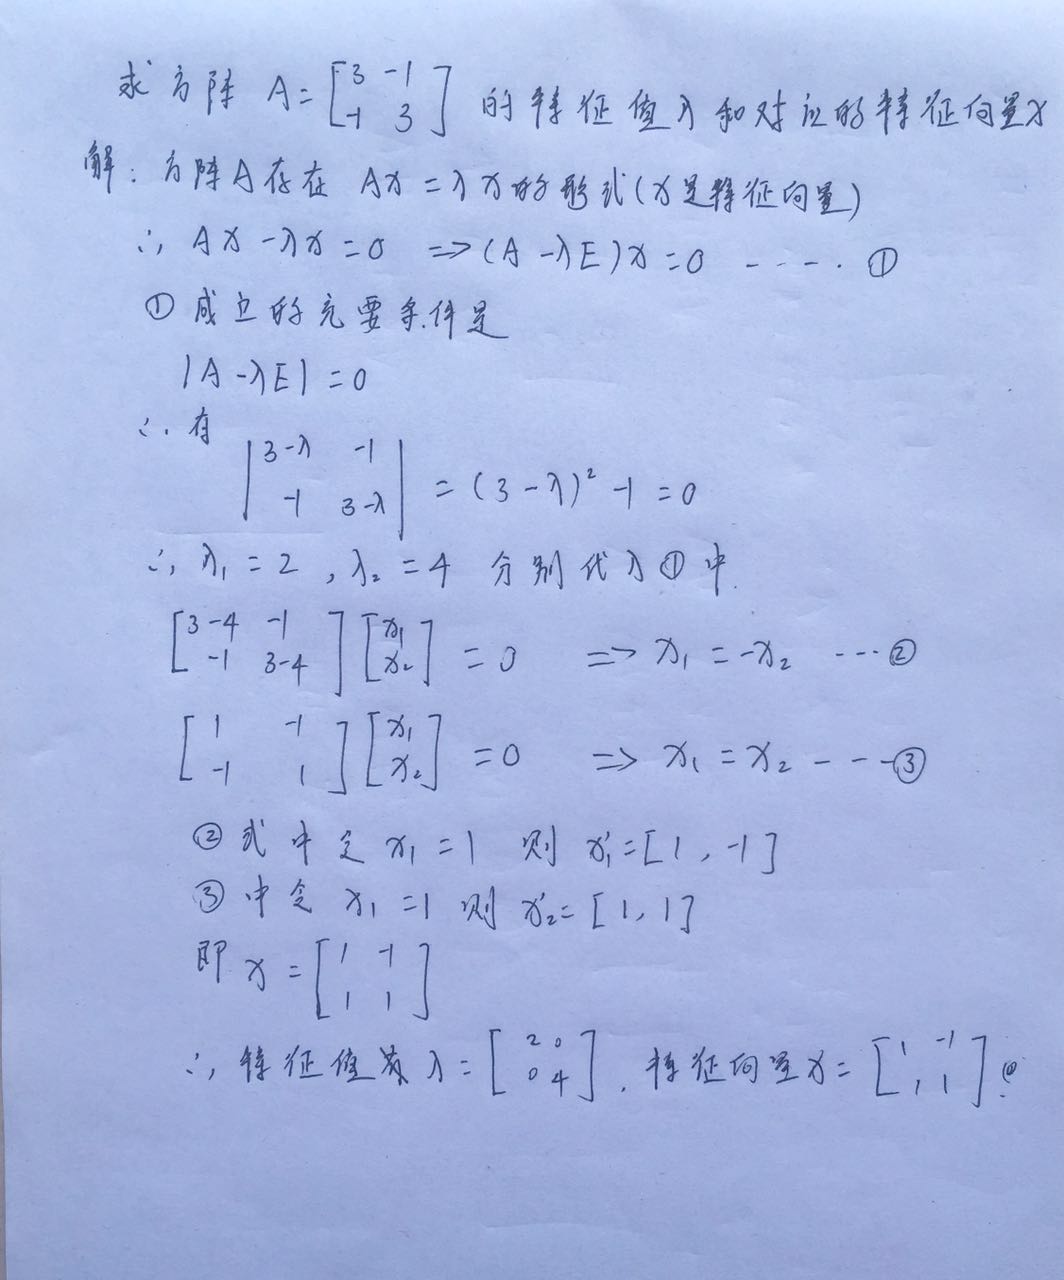 求方阵 A=[3 -1; -1 3] 的特征值λ和对应的特征向量x
解: 方阵A存在 Ax=λx的形式(x是特征向量)
∴ Ax-λx=0 => (A-λE)x=0 ----- ①
①成立的充要条件是
|A-λE|=0
∴有
|3-λ -1; -1 3-λ| = (3-λ)² -1 =0
∴ λ₁=2, λ₂=4 分别代入①中
[3-4 -1; -1 3-4][x₁; x₂] = 0 => x₁=-x₂ ---②
[1 -1; -1 1][x₁; x₂] = 0 => x₁=x₂ ----③
②式中令 x₁=1 则 x₁'=[1, -1]
③中令 x₁=1 则 x₂'=[1, 1]
即 x=[1 -1; 1 1]
∴ 特征值为 λ=[2 0; 0 4], 特征向量x=[1 -1; 1 1]